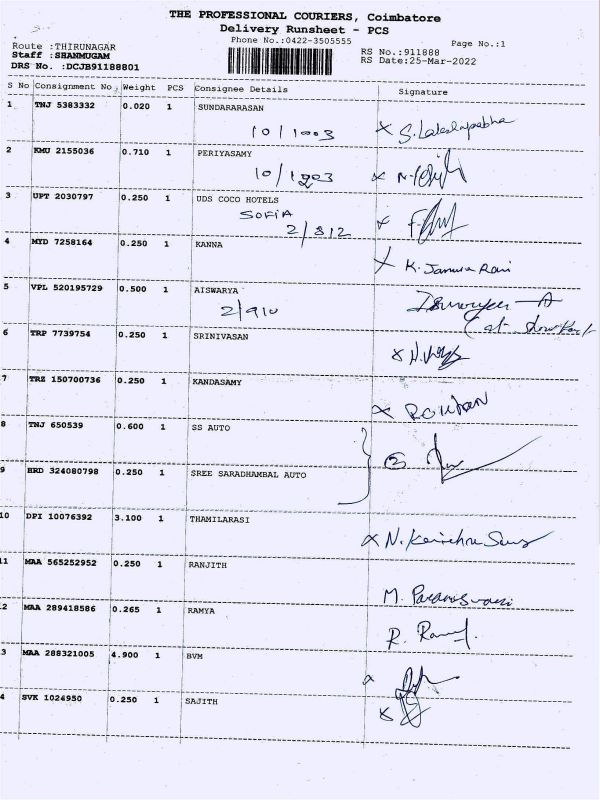 THE PROFESSIONAL COURIERS, Coimbatore
Delivery Runsheet - PCS
Phone No.:0422-3505555
Page No.:1
Route :THIRUNAGAR
RS No.:911888
Staff :SHANMUGAM
RS Date:25-Mar-2022
DRS No. :DCJB91188801
S No Consignment No. Weight PCS Consignee Details Signature
1 TNJ 5383332 0.020 1 SUNDARARASAN
10/1003
2 KMU 2155036 0.710 1 PERIYASAMY
10/1203
3 UPT 2030797 0.250 1 UDS COCO HOTELS
SOFIA
2/812
4 MYD 7258164 0.250 1 KANNA
K. Jamuna Rani
5 VPL 520195729 0.500 1 AISWARYA
2/910
6 TRP 7739754 0.250 1 SRINIVASAN
7 TRZ 150700736 0.250 1 KANDASAMY
8 TNJ 650539 0.600 1 SS AUTO
9 HRD 324080798 0.250 1 SREE SARADHAMBAL AUTO
10 DPI 10076392 3.100 1 THAMILARASI
11 MAA 565252952 0.250 1 RANJITH
2 MAA 289418586 0.265 1 RAMYA
3 MAA 288321005 4.900 1 BVM
4 SVK 1024950 0.250 1 SAJITH